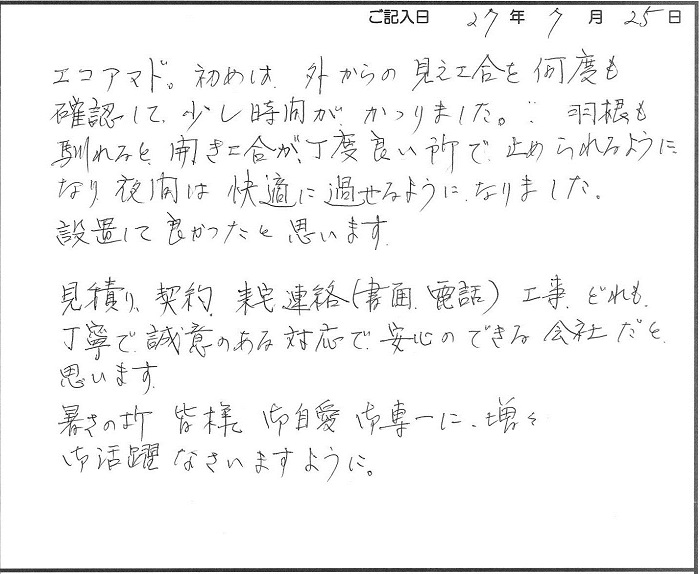 ご記入日 27年 7月 25日
エコアマド。初めは、外からの見え工合を何度も
確認して、少し時間が、かかりました。羽根も
馴れると、開き工合が、丁度良い所で止められるように
なり夜間は快適に過せるように、なりました。
設置して良かったと思います。
見積り、契約、来宅連絡(書面、電話)工事、どれも、
丁寧で、誠意のある対応で、安心のできる会社だと、
思います。
暑さの折皆様、御自愛御専一に、増々
御活躍なさいますように。